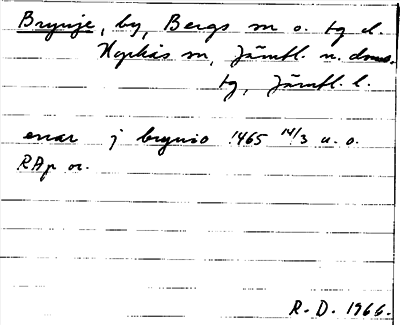 Brynje, by, Bergs sn o. tg d.
Hackås sn, Jämtl. n. doms.
tg, Jämtl. l.
enar j brynio 1465 14/3 u. o.
RAp or.
R. D. 1966.